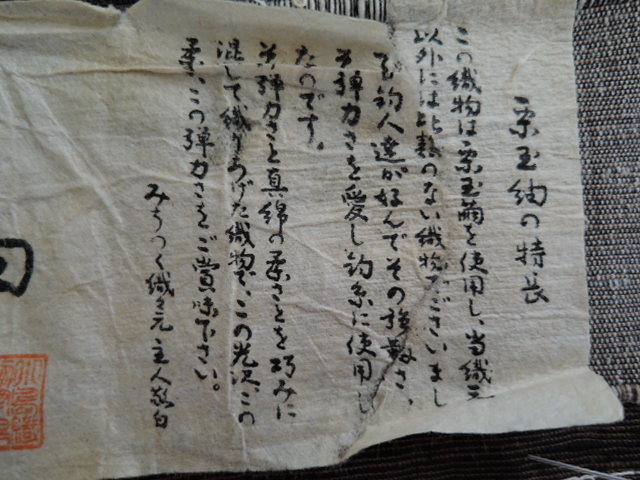 栗玉紬の特長
この織物は栗玉繭を使用し、当織元
以外には比類のない織物でございまし
で釣人達が好んでその強靱さ、
弾力さを愛し釣糸に使用し
たのです。
弾力さと真綿の柔さとを巧みに
混して織りあげた織物で、この光沢、この
柔、この弾力さをご賞味下さい。
みちのく織元 主人敬白